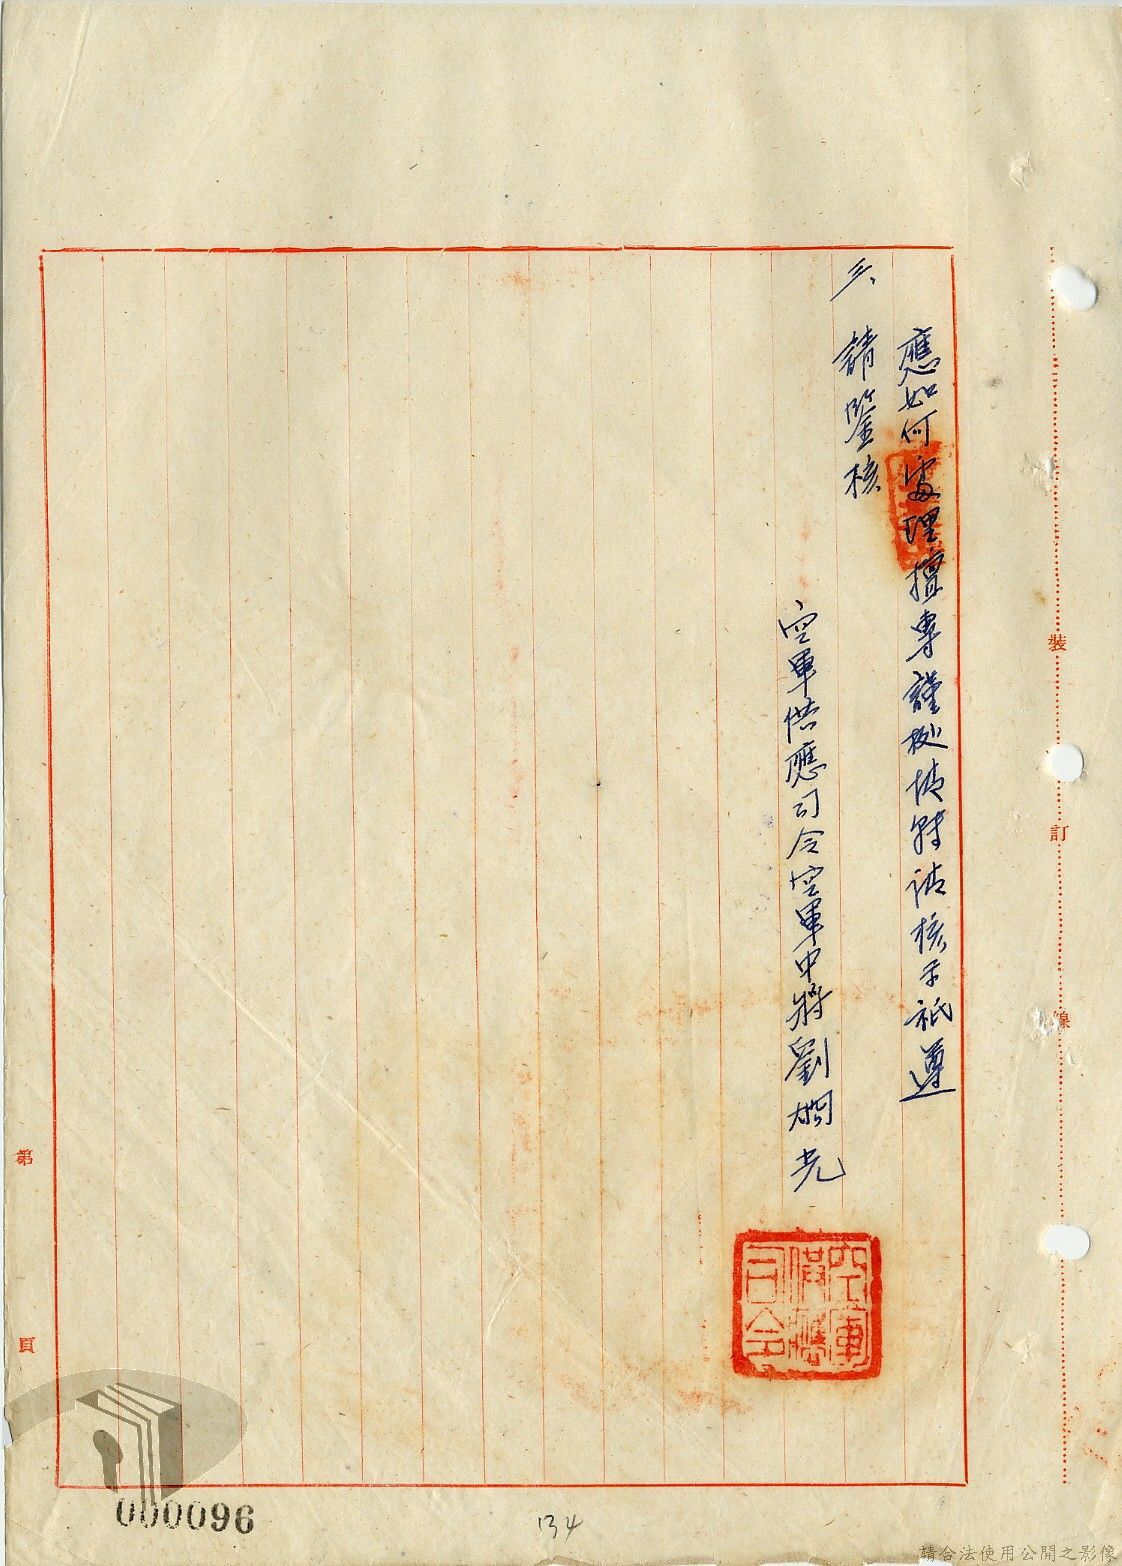 應如何處理擅專謹檢情財請核示祇遵
三、請鑒核
空軍供應司令空軍中將劉烱光
空軍
供應
司令
裝
訂
線
第
頁
000096
134
請合法使用公開之影像